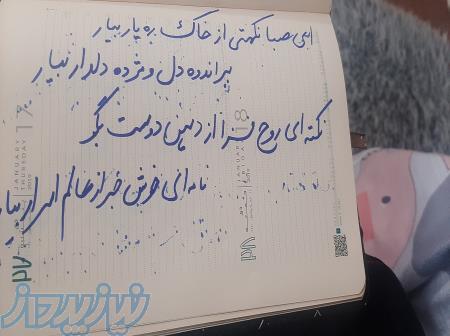 ای صبا نکهتی از خاک ره یار بیار
ببر اندوه دل و مژده دلدار بیار
نکته ای روح فزا از دهن دوست بگو
نامه ای خوش خبر از عالم اسرار بیا
JANUARY
THURSDAY
نیازپرداز